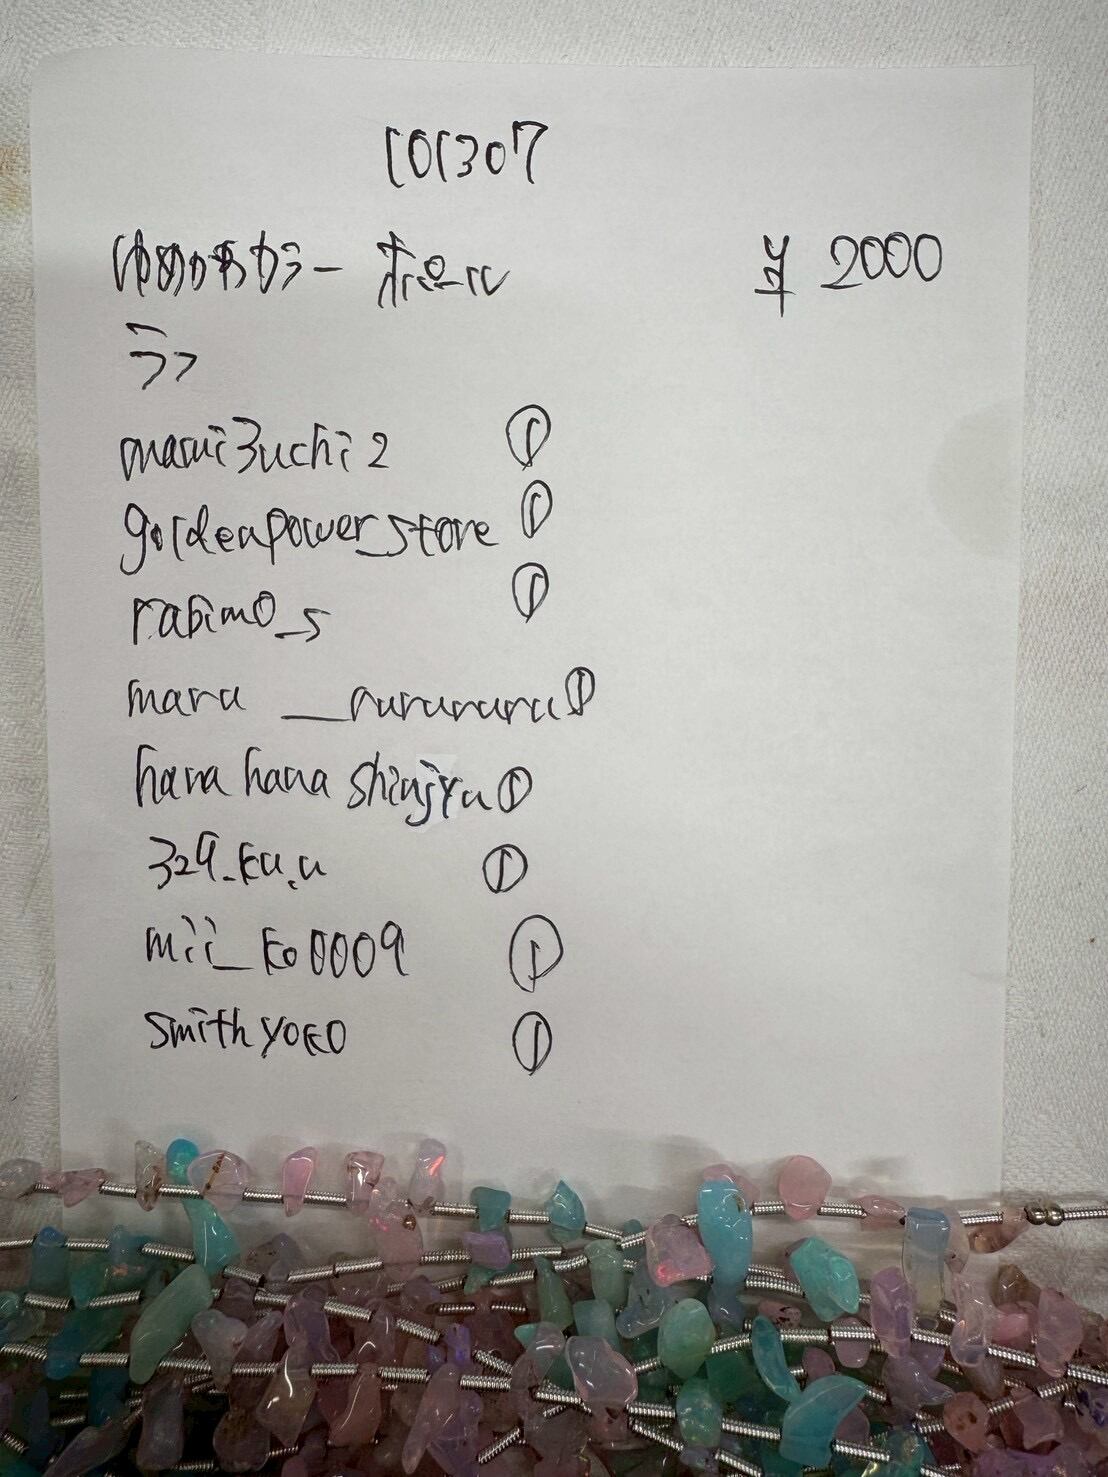 101307
ゆめかわカラー オパール ¥2000
ラフ
mami3uchi2 ①
goldenpower_store ①
rabimo_s ①
maru __rurururu ①
hana hana shinjyu ①
329_ku.u ①
mii_ko0009 ①
smith yoko ①